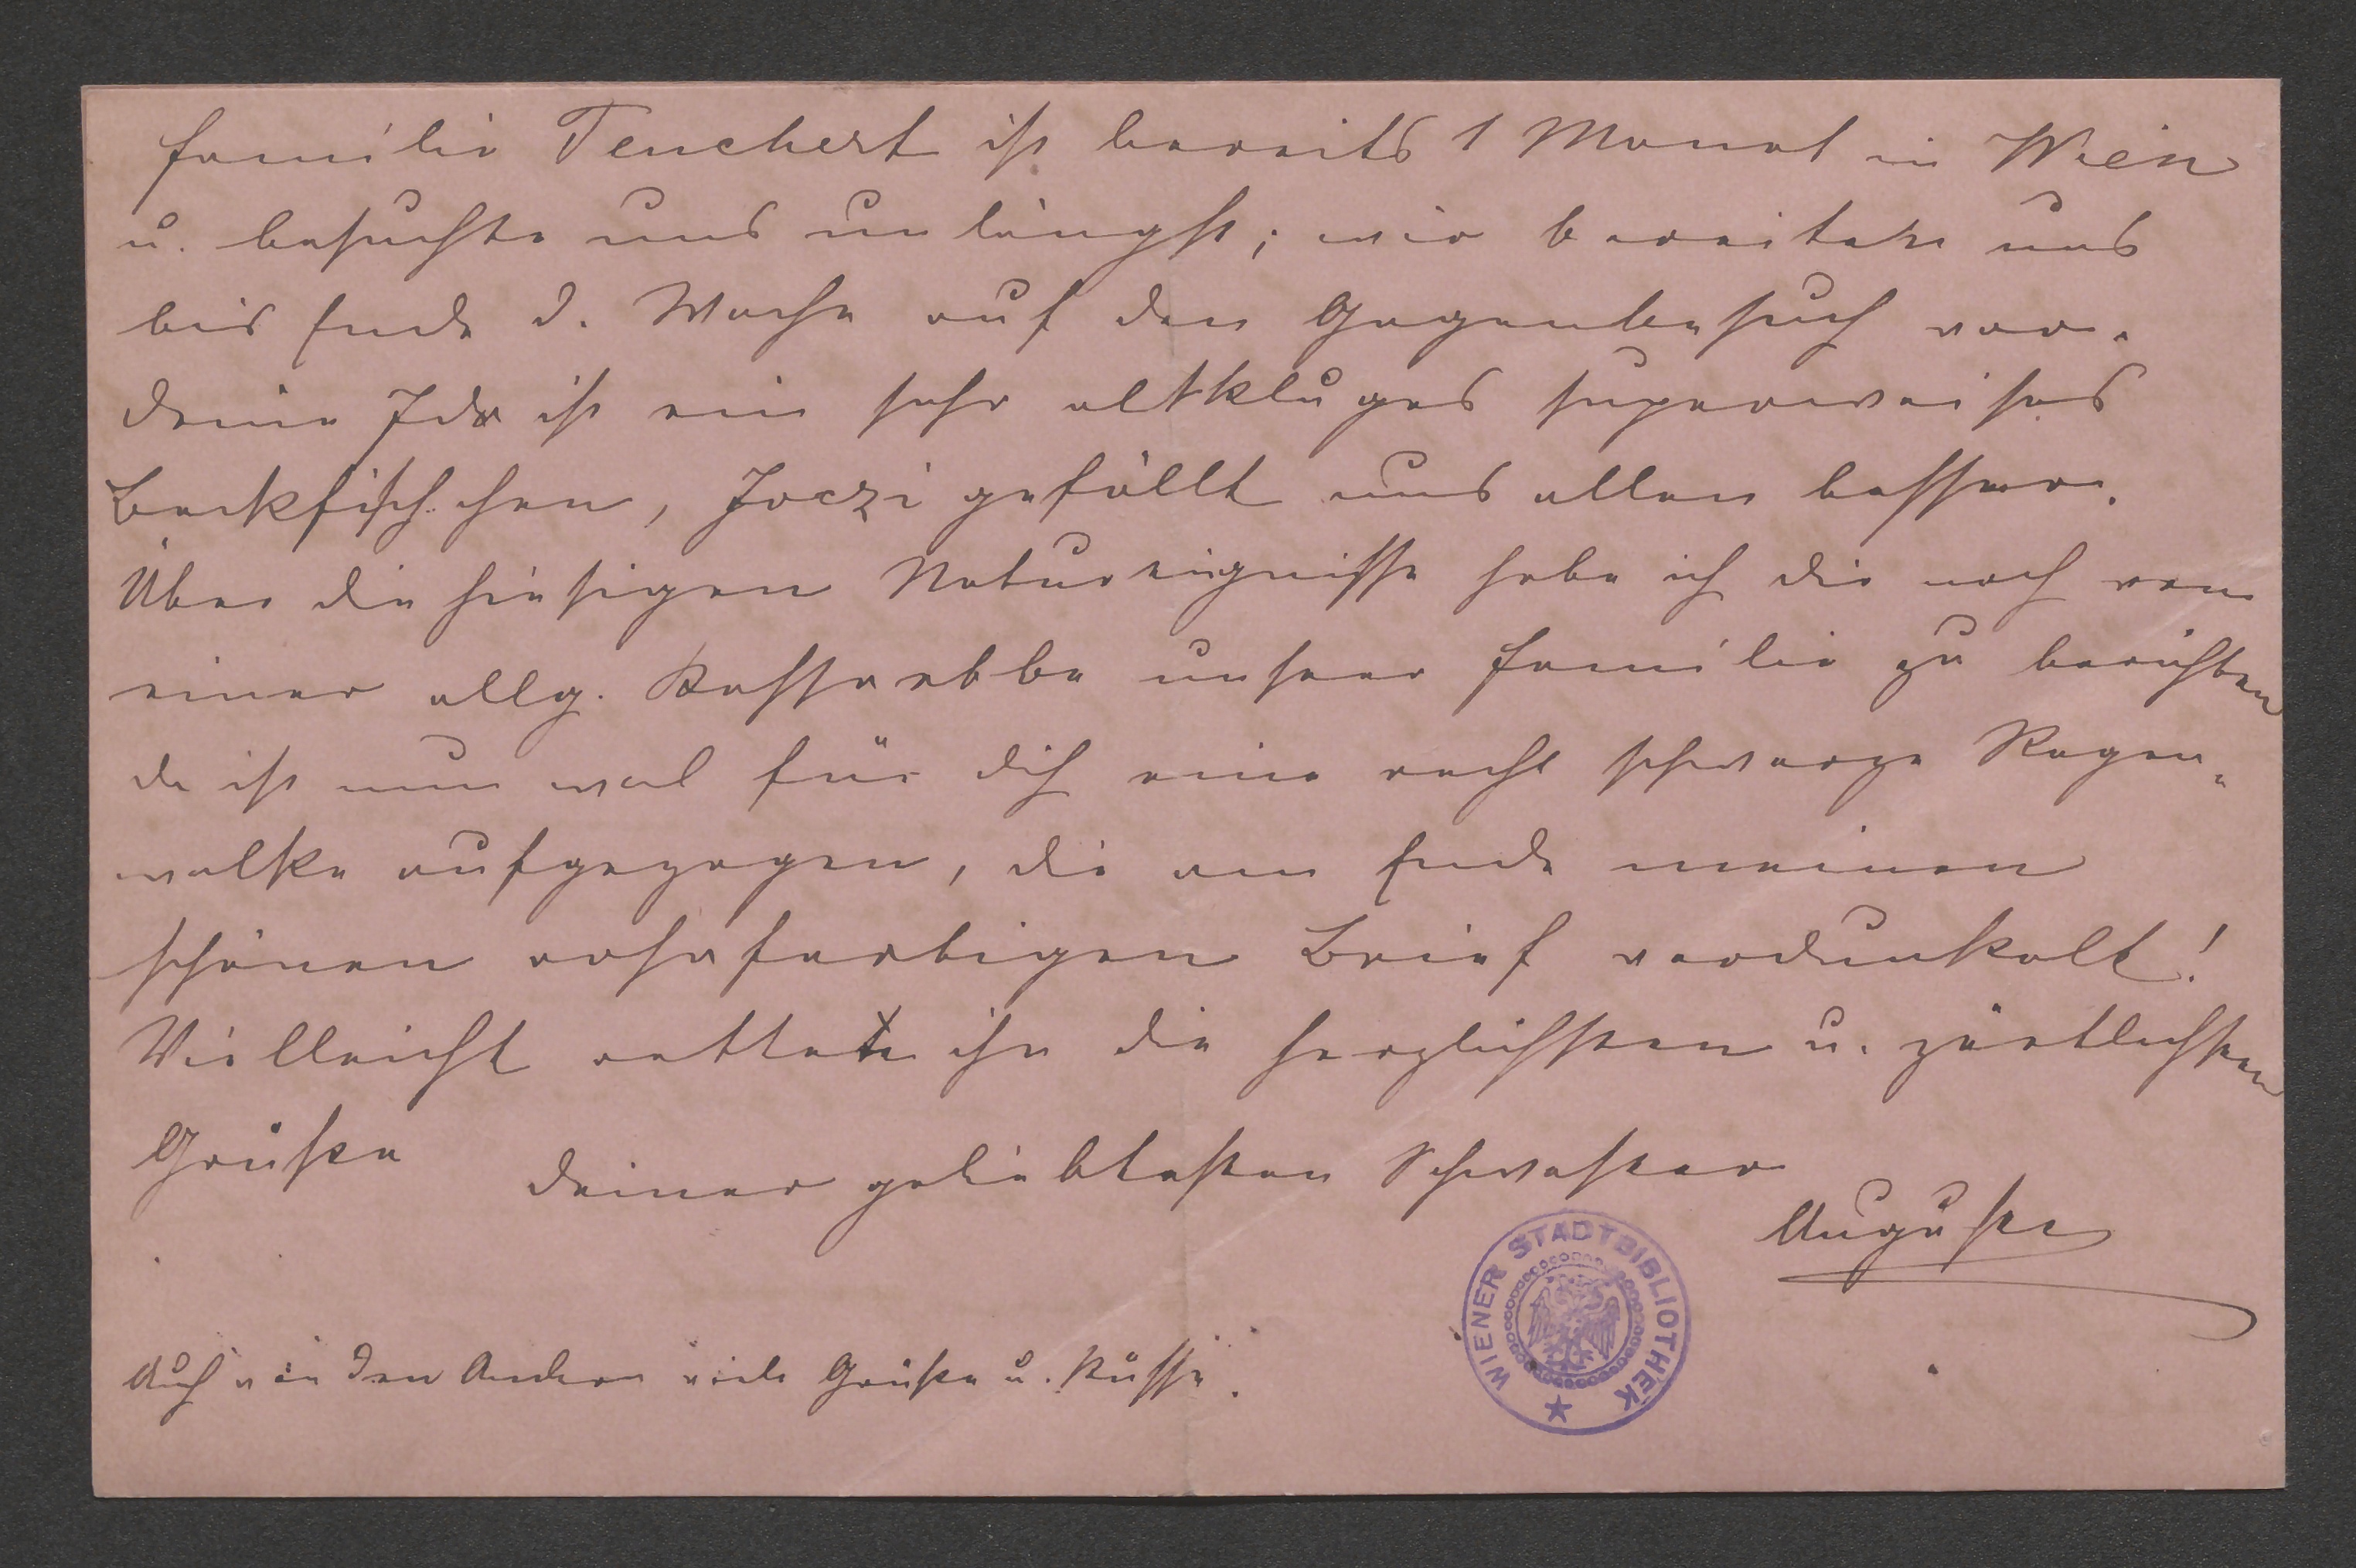 Familie Tenchert ist bereits 1 Monat in Wien
u. besuchte uns unlängst; wir bereiten uns
bis Ende d. Woche auf den Gegenbesuch vor.
Deine Ida ist ein sehr altkluges superweises
Backfischchen, Joczi gefällt uns allen besser.
Über die hiesigen Natureignisse habe ich dir noch von
einer allg. Kassaebbe unserer Familie zu berichten
da ist nun wol für dich eine recht schwarze Regen-
wolke aufgezogen, die am Ende meinen
schönen rosafarbigen Brief verdunkelt!
Vielleicht retten ihn die herzlichsten u. zärtlichsten
Grüße
deiner geliebtesten Schwester
Auguste
Auch von den Andern viele Grüße u. Küsse.
WIENER STADTBIBLIOTHEK